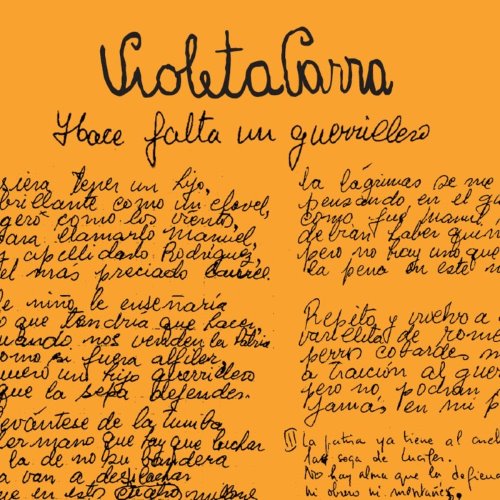 Violeta Parra
Hace falta un guerrillero
siera tener un hijo,
brillante como un clavel,
gero como los vientos,
para llamarlo Manuel,
y apellidarlo Rodríguez,
el más preciado
e niño le enseñaría
o que tendría que hacer,
uando nos venden la Patria
omo si fuera alfiler
uiero un hijo guerrillero
que la sepa defender.
evántese de la tumba
hermano que hay que luchar
la de no su bandera
a van a
ue en este
la lágrimas se me
pensando en el gu
como fue Manuel
debían haber quin
pero no hay uno que
la pena en este m
Repito y vuelvo a
varillita de rome
perros cobardes m
a traición al gue
pero no podrán
jamás en mi p
La patria ya tiene al cuel
la soga de Lucifer
No hay alma que la defien
ni obrero ni montañés